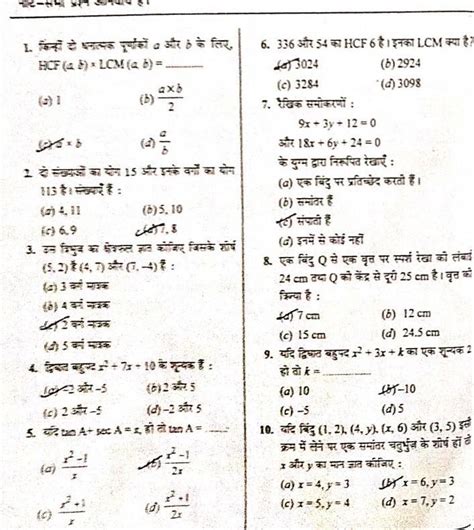 नोट—सभी प्रश्न अनिवार्य हैं।
1. किन्हीं दो धनात्मक पूर्णांकों a और b के लिए,
HCF (a, b) × LCM (a, b) = ______
(a) 1 (b) a×b/2
(c) a × b (d) a/b
2. दो संख्याओं का योग 15 और इनके वर्गों का योग
113 है। संख्याएँ हैं :
(a) 4, 11 (b) 5, 10
(c) 6, 9 (d) 7, 8
3. उस त्रिभुज का क्षेत्रफल ज्ञात कीजिए जिसके शीर्ष
(5, 2) हैं (4, 7) और (7, –4) हैं :
(a) 3 वर्ग मात्रक
(b) 4 वर्ग मात्रक
(c) 2 वर्ग मात्रक
(d) 5 वर्ग मात्रक
4. द्विघात बहुपद x² + 7x + 10 के शून्यक हैं :
(a) –2 और –5 (b) 2 और 5
(c) 2 और –5 (d) –2 और 5
5. यदि tan A + sec A = x, हो तो tan A = ______
(a) x²–1/x (b) x²–1/2x
(c) x²+1/x (d) x²+1/2x
6. 336 और 54 का HCF 6 है। इनका LCM क्या है?
(a) 3024 (b) 2924
(c) 3284 (d) 3098
7. रैखिक समीकरणों :
9x + 3y + 12 = 0
और 18x + 6y + 24 = 0
के युग्म द्वारा निरूपित रेखाएँ :
(a) एक बिंदु पर प्रतिच्छेद करती हैं।
(b) समांतर हैं
(c) संपाती हैं
(d) इनमें से कोई नहीं
8. एक बिंदु Q से एक वृत्त पर स्पर्श रेखा की लंबाई
24 cm तथा Q की केंद्र से दूरी 25 cm है। वृत्त की
त्रिज्या है :
(a) 7 cm (b) 12 cm
(c) 15 cm (d) 24.5 cm
9. यदि द्विघात बहुपद x² + 3x + k का एक शून्यक 2
हो तो k = ______
(a) 10 (b) –10
(c) –5 (d) 5
10. यदि बिंदु (1, 2), (4, y), (x, 6) और (3, 5) इसी
क्रम में लेने पर एक समांतर चतुर्भुज के शीर्ष हों तो
x और y का मान ज्ञात कीजिए :
(a) x = 4, y = 3 (b) x = 6, y = 3
(c) x = 5, y = 4 (d) x = 7, y = 2